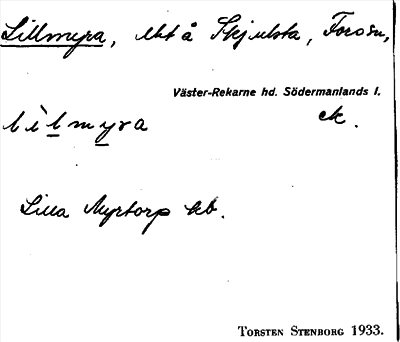 Lillmyra, lht å Skjulsta, Torsh.,
Väster-Rekarne hd. Södermanlands l.
lìlmyra ek.
Lilla Myrtorp kb.
TORSTEN STENBORG 1933.